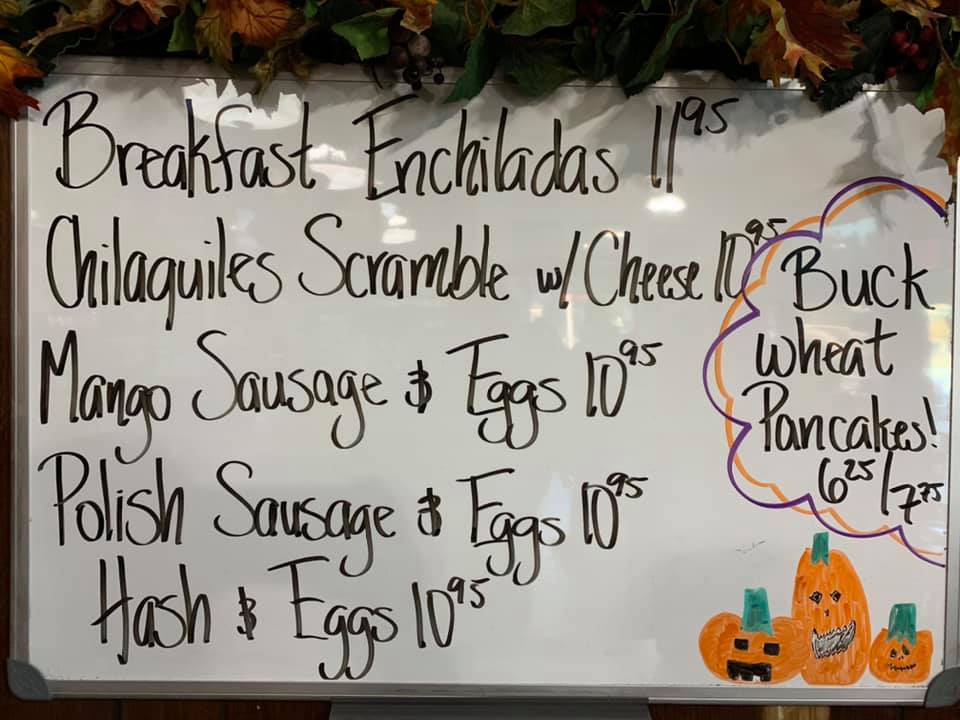 Breakfast Enchiladas 11 95
Chilaquiles Scramble w/ Cheese 10 95
Mango Sausage & Eggs 10 95
Polish Sausage & Eggs 10 95
Hash & Eggs 10 95
Buck
wheat
Pancakes!
6 25 / 7 75